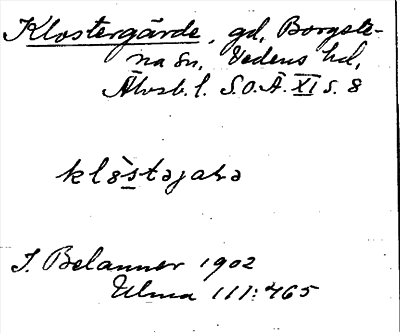 Klostergärde, gd, Borgste-
na sn, Vedens hd,
Älvsb. l. S.O.Ä. XI s. 8
J. Belanner 1902
Ulma 111:465